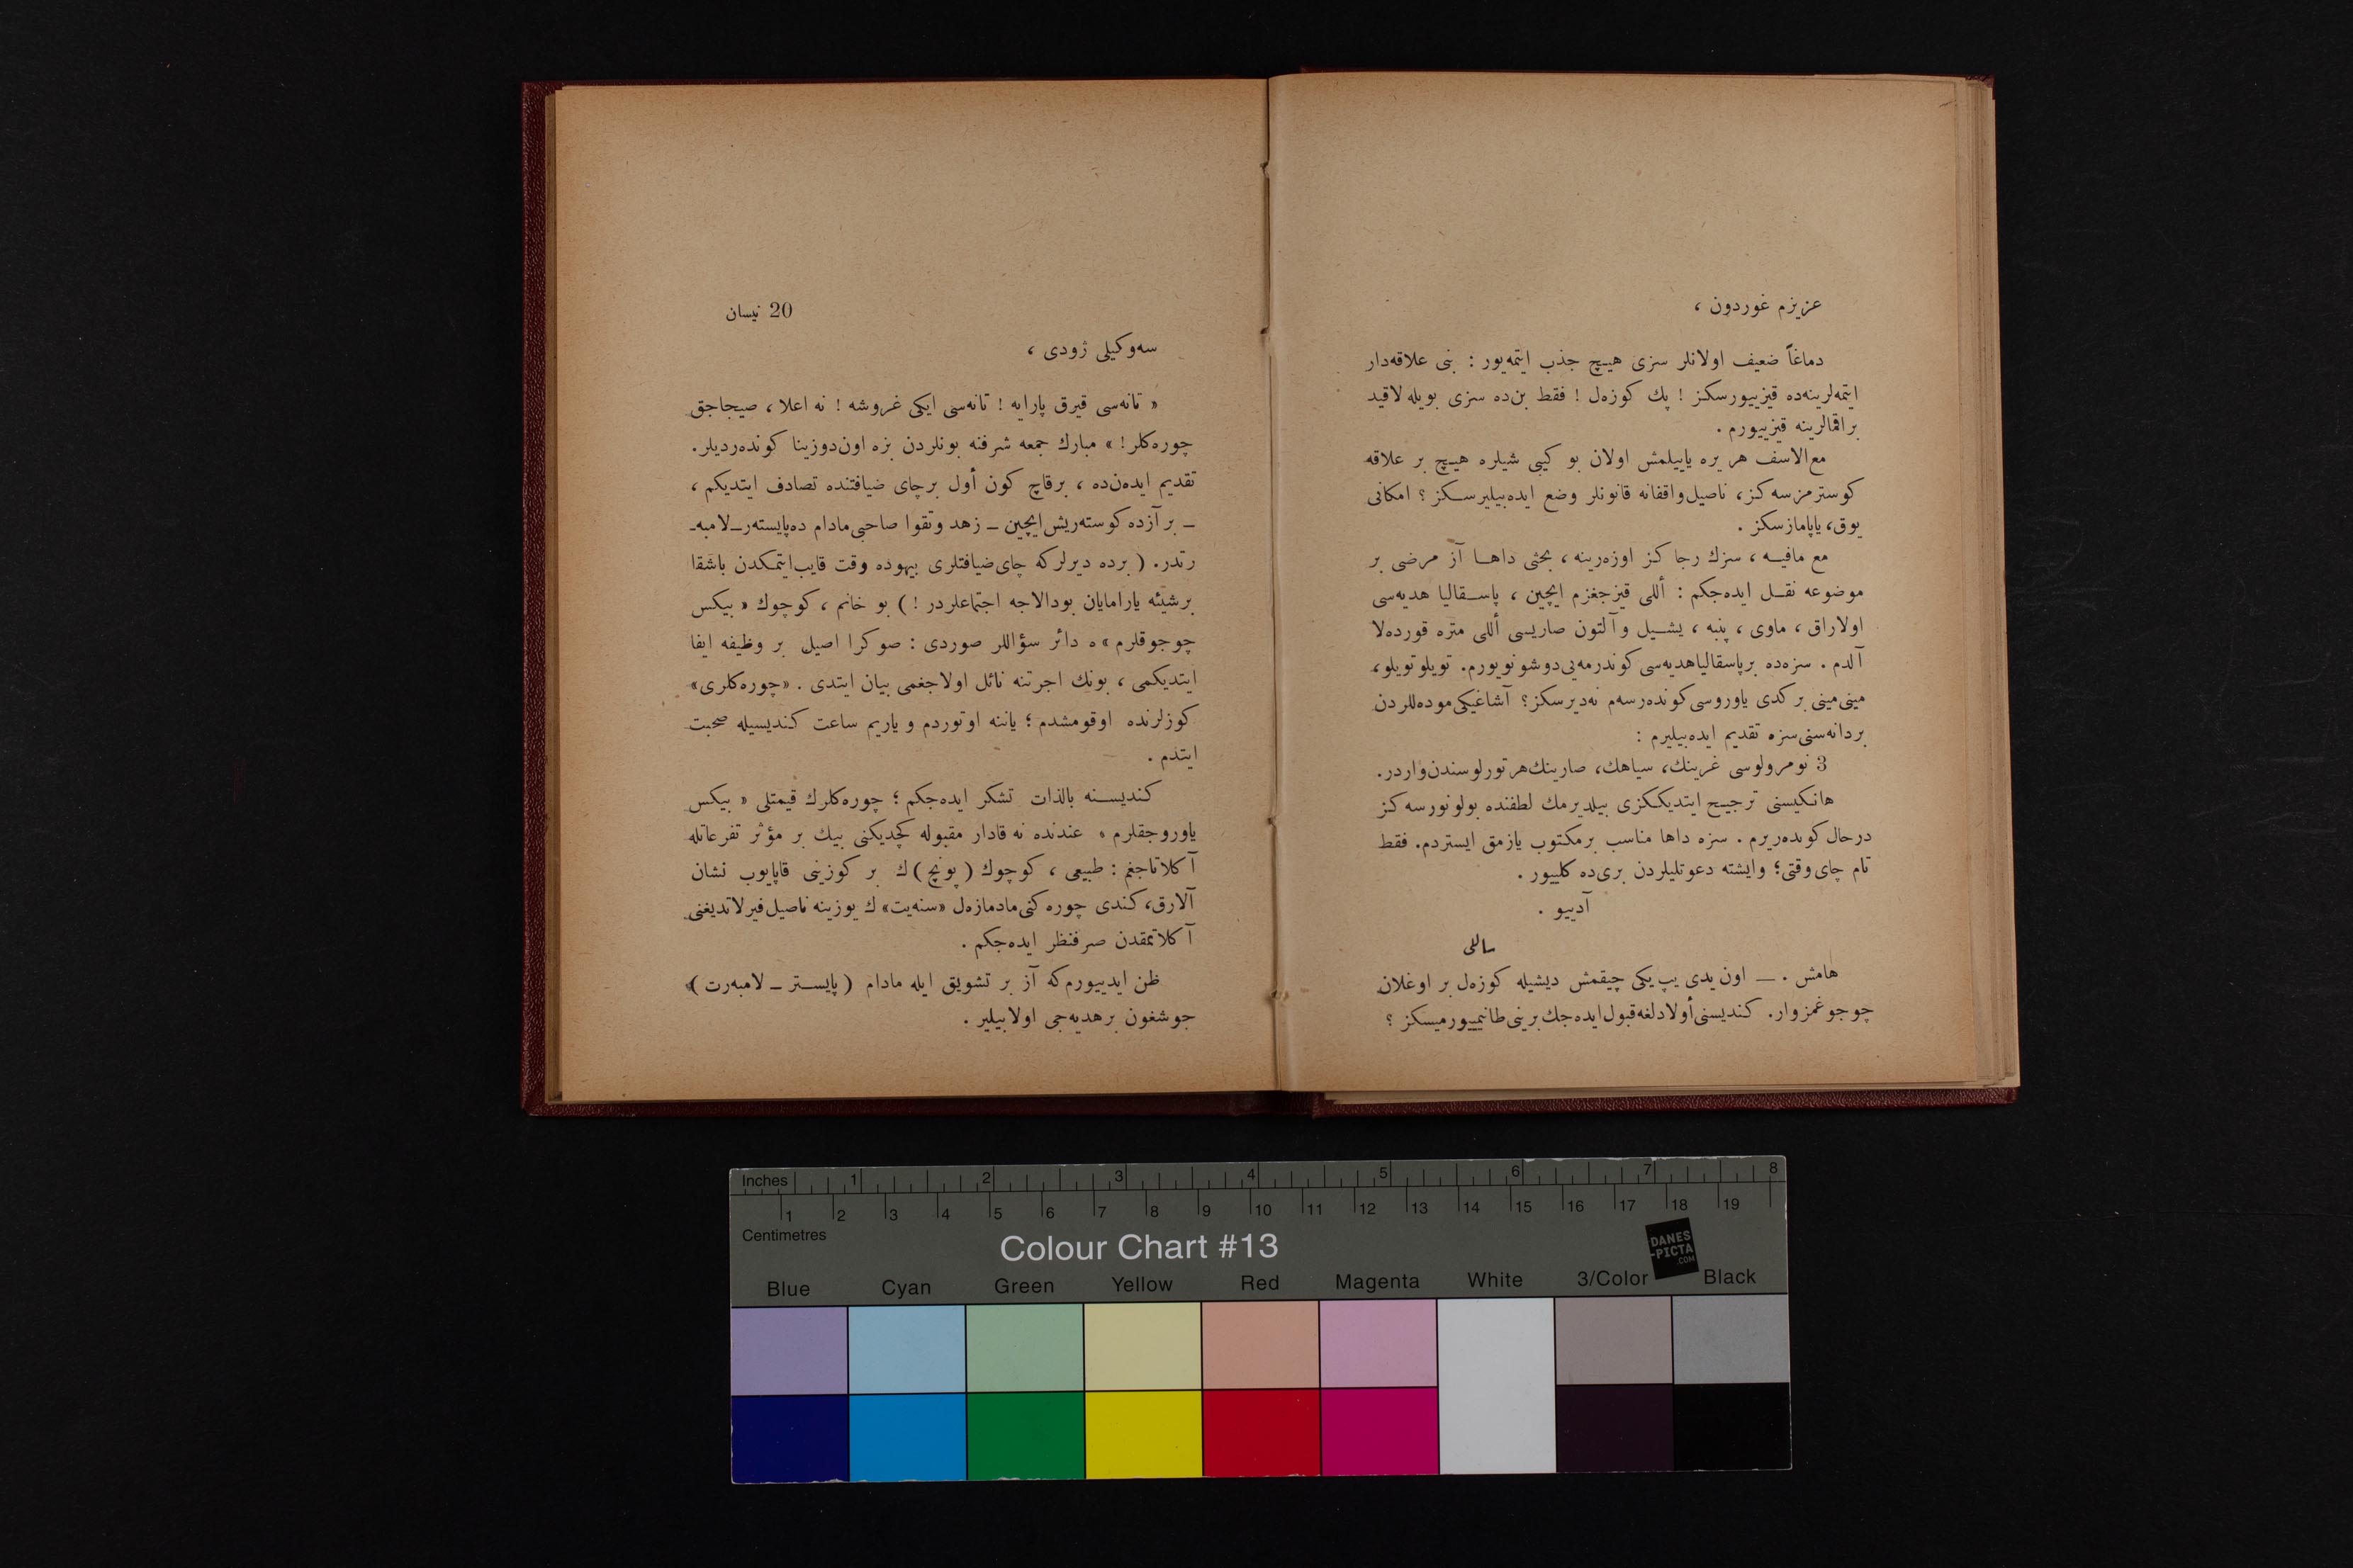 عزیزم غوردون ،
دماغاً ضعیف اولانلر سزی هیچ جذب ایتمه‌یور : بنی علاقه‌دار
ایتمه‌لرینه‌ده قیزییورسکز ! پك كوزه‌ل ! فقط بن‌ده سزی بویله لاقید
براقمالرینه قیزییورم .
مع الاسف هر یره یاییلمش اولان بو كیبی شیلره هیچ بر علاقه
كوسترمزسه‌كز، ناصیل واقفانه قانونلر وضع ایده‌بیلیرسكز ؟ امكانی
یوق، یاپامازسكز .
مع مافیه ، سزك رجاكز اوزه‌رینه ، بحثی داها آز مرضی بر
موضوعه نقل ایده‌جكم : أللی قیزجغزم ایچین ، پاسقالیا هدیه‌سی
اولاراق ، ماوی ، پنبه ، یشیل وآلتون صاریسی أللی متره قورده‌لا
آلدم . سزه‌ده برپاسقالیاهدیه‌سی كوندرمه‌یی‌دوشونویورم. تویلوتویلو،
مینی‌مینی بر كدی یاوروسی كونده‌رسه‌م نه‌دیرسكز؟ آشاغیكی موده‌للردن
بردانه‌سنی‌سزه تقدیم ایده‌بیلیرم :
3 نومرولوسی غرینك، سیاهك، صارینك‌هرتورلوسندن‌واردر.
هانكیسنی ترجیح ایتدیككزی بیلدیرمك لطفنده بولونورسه‌كز
درحال كونده‌ریرم . سزه داها مناسب برمكتوب یازمق ایستردم. فقط
تام چای وقتی؛ وایشته دعوتلیلردن بری‌ده كلییور .
آدییو .
ساللی
هامش . — اون یدی یپ یكی چیقمش دیشیله كوزه‌ل بر اوغلان
چوجوغمزوار. كندیسنی‌أولادلغه‌قبول‌ایده‌جك‌برینی‌طانییورمیسكز ؟
20 نیسان
سه‌وكیلی ژودی ،
« تانه‌سی قیرق پارایه ! تانه‌سی ایكی غروشه ! نه اعلا ، صیجاجق
چوره‌كلر! » مبارك جمعه شرفنه بونلردن بزه اون‌دوزینا كونده‌ردیلر.
تقدیم ایده‌ن‌ده ، برقاچ كون أول برچای ضیافتنده تصادف ایتدیكم ،
ـ بر آزده كوسته‌ریش‌ایچین ـ زهد وتقوا صاحبی‌مادام ده‌پایسته‌رـ‌لامبه‌ـ
رتدر. ( برده دیرلركه چای‌ضیافتلری بیهوده وقت قایب‌ایتمكدن باشقا
برشیئه یارامایان بودالاجه اجتماعلردر ! ) بو خانم ، كوچوك « بیكس
چوجوقلرم » ه دائر سؤاللر صوردی : صوكرا اصیل بر وظیفه ایفا
ایتدیكمی ، بونك اجرتنه نائل اولاجغمی بیان ایتدی . «چوره‌كلری»
كوزلرنده اوقومشدم ؛ یاننه اوتوردم و یاریم ساعت كندیسیله صحبت
ایتدم .
كندیسنه بالذات تشكر ایده‌جكم ؛ چوره‌كلرك قیمتلی « بیكس
یاوروجقلرم » عندنده نه قادار مقبوله كچدیكنی بیك بر مؤثر تفرعاتله
آكلاتاجغم : طبیعی ، كوچوك ( پونچ ) ك بر كوزینی قاپایوب نشان
آلارق، كندی چوره‌كنی‌مادمازه‌ل «سنه‌یت» ك یوزینه ناصیل‌فیرلاتدیغنی
آكلاتمقدن صرفنظر ایده‌جكم .
ظن ایدییورم‌كه آز بر تشویق ایله مادام ( پایستر ـ لامبه‌رت )
جوشغون بر هدیه‌جی اولابیلیر .
Inches 1 2 3 4 5 6 7 8
1 2 3 4 5 6 7 8 9 10 11 12 13 14 15 16 17 18 19
Centimetres
Colour Chart #13
DANES
-PICTA
.COM
Blue Cyan Green Yellow Red Magenta White 3/Color Black